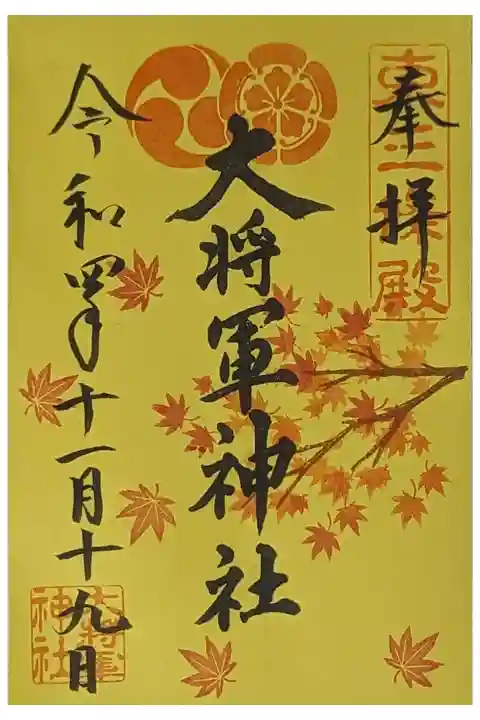 奉拝
東三條殿
大将軍神社
令和四年十一月十九日
大将軍
神社